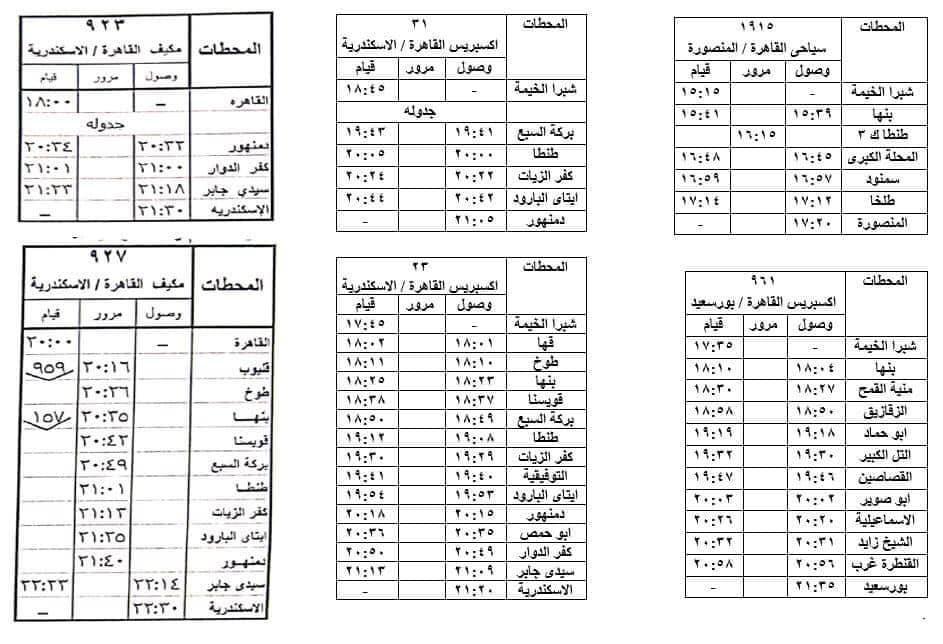 المحطات ١٩١٥
سياحى القاهرة / المنصورة
وصول مرور قيام
شبرا الخيمة - ١٥:١٥
بنها ١٥:٣٩ ١٥:٤١
طنطا ك ٣ ١٦:١٥
المحلة الكبرى ١٦:٤٥ ١٦:٤٨
سمنود ١٦:٥٧ ١٦:٥٩
طلخا ١٧:١٢ ١٧:١٤
المنصورة ١٧:٢٠ -
المحطات ٣١
اكسبريس القاهرة / الاسكندرية
وصول مرور قيام
شبرا الخيمة - ١٨:٤٥
جدوله
بركة السبع ١٩:٤١ ١٩:٤٣
طنطا ٢٠:٠٠ ٢٠:٠٥
كفر الزيات ٢٠:٢٢ ٢٠:٢٤
ايتاى البارود ٢٠:٤٢ ٢٠:٤٤
دمنهور ٢١:٠٥ -
المحطات ٩٢٣
مكيف القاهرة / الاسكندرية
وصول مرور قيام
القاهره – ١٨:٠٠
جدوله
دمنهور ٢٠:٣٢ ٢٠:٣٤
كفر الدوار ٢١:٠٠ ٢١:٠١
سيدي جابر ٢١:١٨ ٢١:٢٣
الإسكندريه ٢١:٣٠ –
المحطات ٩٦١
اكسبريس القاهرة / بورسعيد
وصول مرور قيام
شبرا الخيمة - ١٧:٣٥
بنها ١٨:٠٤ ١٨:١٠
منية القمح ١٨:٢٧ ١٨:٣٠
الزقازيق ١٨:٥٠ ١٨:٥٨
ابو حماد ١٩:١٨ ١٩:١٩
التل الكبير ١٩:٣٠ ١٩:٣٢
القصاصين ١٩:٤٦ ١٩:٤٧
أبو صوير ٢٠:٠٢ ٢٠:٠٣
الاسماعيلية ٢٠:٢٠ ٢٠:٢٦
الشيخ زايد ٢٠:٣١ ٢٠:٣٢
القنطرة غرب ٢٠:٥٦ ٢٠:٥٨
بورسعيد ٢١:٣٥ -
المحطات ٢٣
اكسبريس القاهرة / الاسكندرية
وصول مرور قيام
شبرا الخيمة - ١٧:٤٥
قها ١٨:٠١ ١٨:٠٢
طوخ ١٨:١٠ ١٨:١١
بنها ١٨:٢٣ ١٨:٢٥
قويسنا ١٨:٣٧ ١٨:٣٨
بركة السبع ١٨:٤٩ ١٨:٥٠
طنطا ١٩:٠٨ ١٩:١٢
كفر الزيات ١٩:٢٩ ١٩:٣٠
التوفيقية ١٩:٤٠ ١٩:٤١
ايتاى البارود ١٩:٥٣ ١٩:٥٤
دمنهور ٢٠:١٥ ٢٠:١٨
ابو حمص ٢٠:٣٥ ٢٠:٣٦
كفر الدوار ٢٠:٤٩ ٢٠:٥٠
سيدى جابر ٢١:٠٩ ٢١:١٣
الاسكندرية ٢١:٢٠ -
المحطات ٩٢٧
مكيف القاهرة / الاسكندرية
وصول مرور قيام
القاهرة – ٢٠:٠٠
قليوب ٢٠:١٦ ٩٥٩
طوخ ٢٠:٢٦
بنهـا ٢٠:٣٥ ١٥٧
قويسنا ٢٠:٤٣
بركة السبع ٢٠:٤٩
طنطـا ٢١:٠١
كفر الزيات ٢١:١٣
ايتاى البارود ٢١:٢٥
دمنهـور ٢١:٤٠
سيدى جابر ٢٢:١٤ ٢٢:٢٣
الاسكندرية ٢٢:٣٠ –